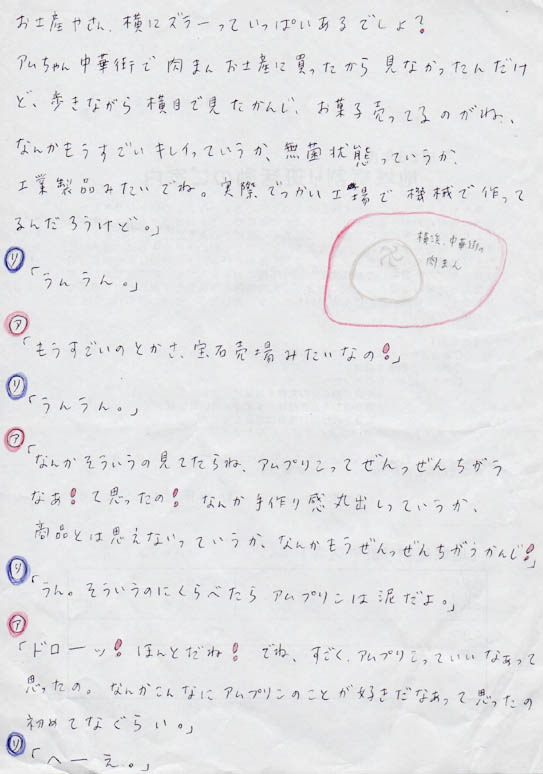 お土産やさん、横にズラーっていっぱいあるでしょ?
アムちゃん中華街で肉まんお土産に買ったから見なかったんだけ
ど、歩きながら横目で見たかんじ、お菓子売ってるのがね、
なんかもうすごいキレイっていうか、無菌状態っていうか、
工業製品みたいでね。実際でっかい工場で機械で作って
るんだろうけど。」
横浜、中華街の
肉まん
リ
「うんうん。」
ア
「もうすごいのとかさ、宝石売場みたいなの!」
リ
「うんうん。」
ア
「なんかそういうの見てたらね、アムプリンってぜんっぜんちがう
なあ!て思ったの!なんか手作り感丸出しっていうか、
商品とは思えないっていうか、なんかもうぜんっぜんちがうかんじ!」
リ
「うん。そういうのにくらべたらアムプリンは泥だよ。」
ア
「ドローッ!ほんとだね!でね、すごく、アムプリンっていいなあって
思ったの。なんかこんなにアムプリンのことが好きだなあって思ったの
初めてなぐらい。」
リ
「へーえ。」